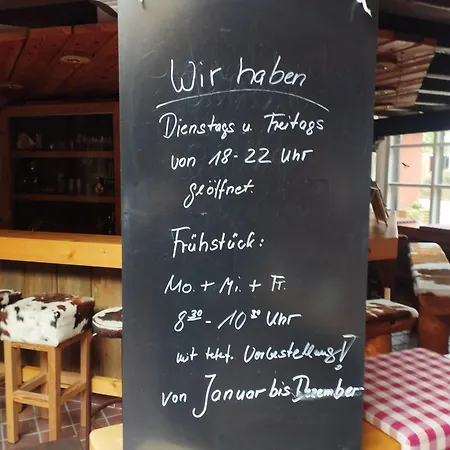 Wir haben
Dienstags u. Freitags
von 18-22 Uhr
geöffnet.
Frühstück:
Mo. + Mi. + Fr.
8³⁰ - 10³⁰ Uhr
mit telef. Vorbestellung!
von Januar bis Dezember